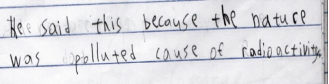 He said this because the nature
was polluted cause of radioactivity